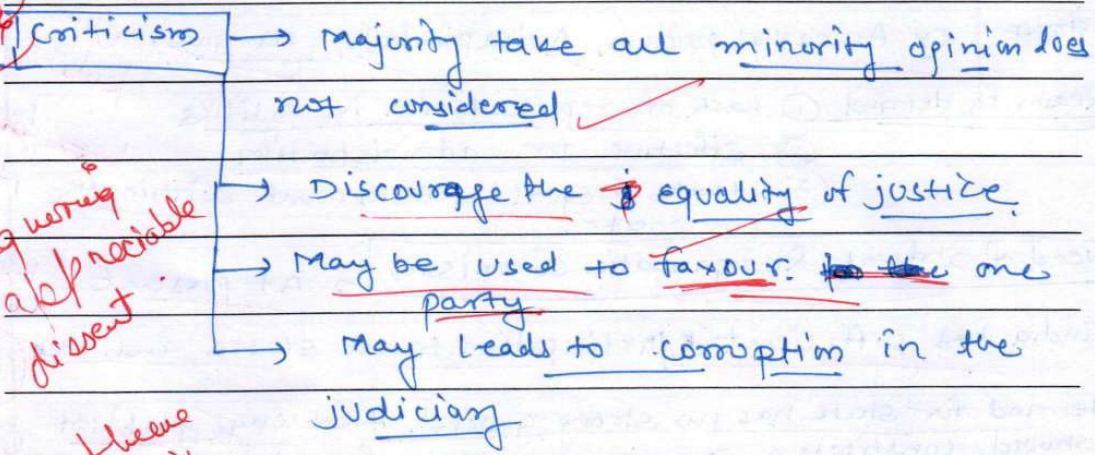 Criticism → Majority take all minority opinion does
not considered.
→ Discourage the equality of justice.
→ May be used to favour. one
party
→ May leads to corruption in the
judiciary
appreciable
dissent